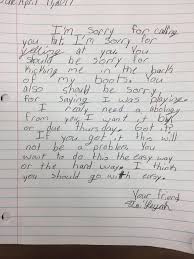 I'm sorry for calling
you fat. I'm sorry for
yelling at you. You
should be sorry for
kicking me in the back
of my boots. You
also should be sorry
for saying I was playing.
I really need a apology
from you. I want it by
or due thursday. Got it?
If you got it this will
not be a problem. You
want to do this the easy way
or the hard way. I think
you should go with easy.
Your friend,